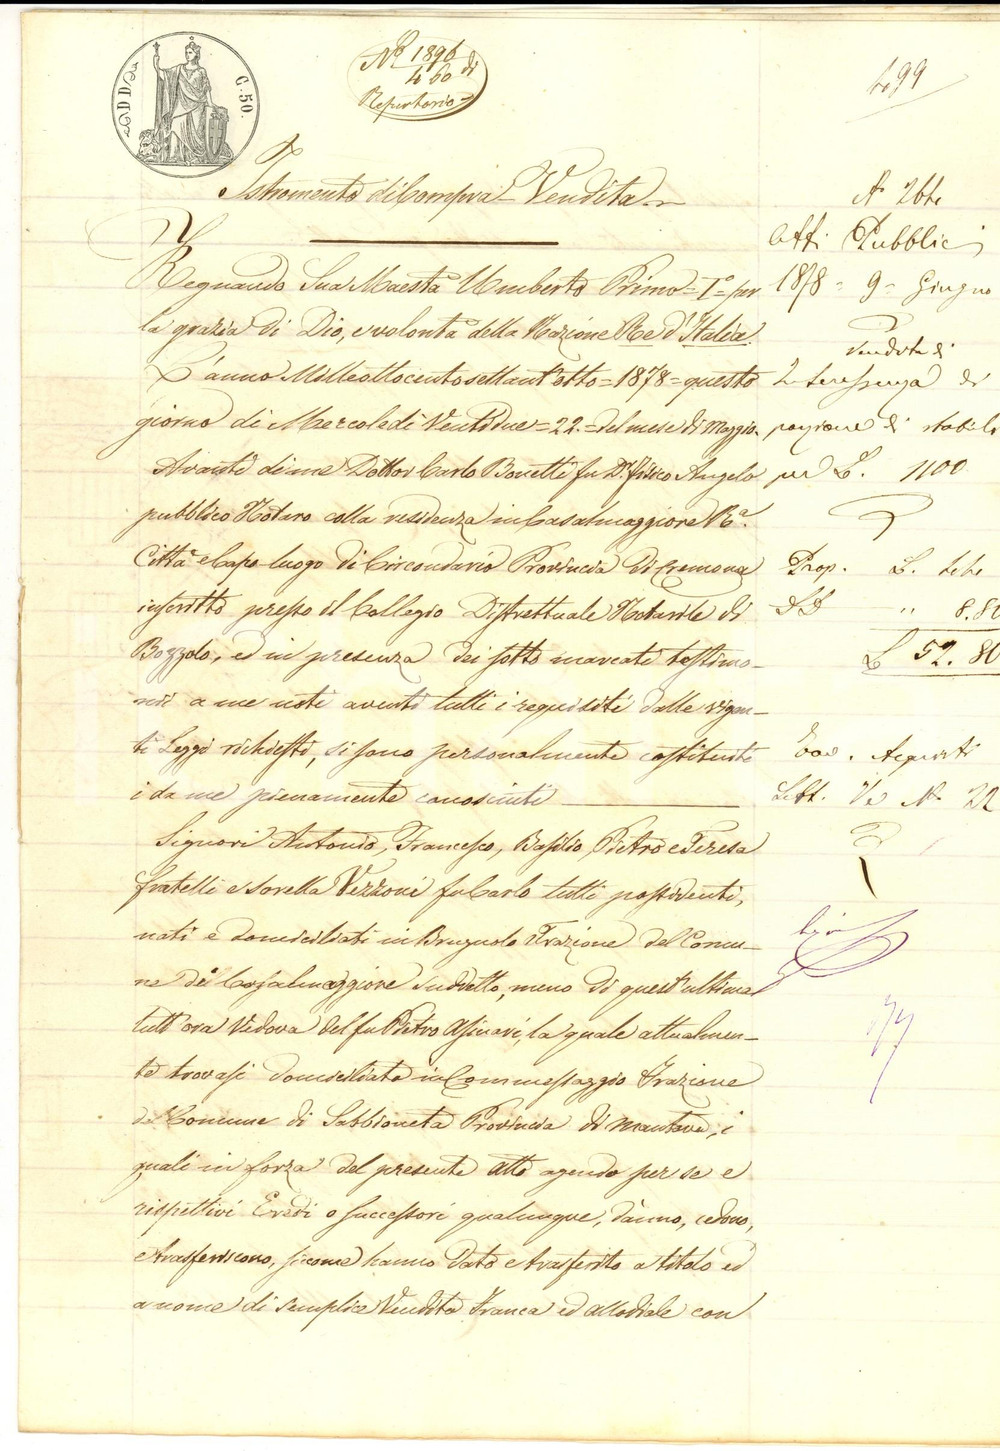 C. 50.
N° 1896
460 di
Repertorio
499
Istromento di Compra-Vendita
Regnando Sua Maestà Umberto Primo = I° = per
la grazia di Dio, e volontà della Nazione Re d'Italia.
L'anno Milleottocentosettant'otto = 1878 = questo
giorno di Mercoledì Ventidue = 22. = del mese di Maggio.
Avanti di me Dottor Carlo Bonetti fu Dr. fisico Angelo
pubblico Notaro colla residenza in Casalmaggiore Ra.
Città e Capo luogo di Circondario Provincia di Cremona
inscritto presso il Collegio Distrettuale Notarile di
Bozzolo, ed in presenza dei sotto marcati testimo-
nii a me noti aventi tutti i requisiti dalle vigen-
ti Leggi richiesti, si sono personalmente costituiti
i da me pienamente conosciuti
Signori Antonio, Francesco, Basilio, Pietro e Teresa
fratelli e sorella Vezzoni fu Carlo tutti possidenti,
nati e domiciliati in Brugnolo Frazione del Comu-
ne di Casalmaggiore suddetto, meno di quest'ultima
tutt'ora Vedova del fu Pietro Asinari, la quale attualmen-
te trovasi domiciliata in Commessaggio Frazione
del Comune di Sabbioneta Provincia di Mantova, i
quali in forza del presente atto agendo per se e
rispettivi Eredi o successori qualunque, dànno, cedono,
e trasferiscono, siccome hanno dato e trasferito a titolo ed
a nome di semplice Vendita franca ed allodiale con
Atti Pubblici
1878 = 9 = Giugno
Vendita di
Interessenza di
porzione di stabili
per L. 1100
Prop. L.
" 8.80
L 52.80
Acquisti
N° 22